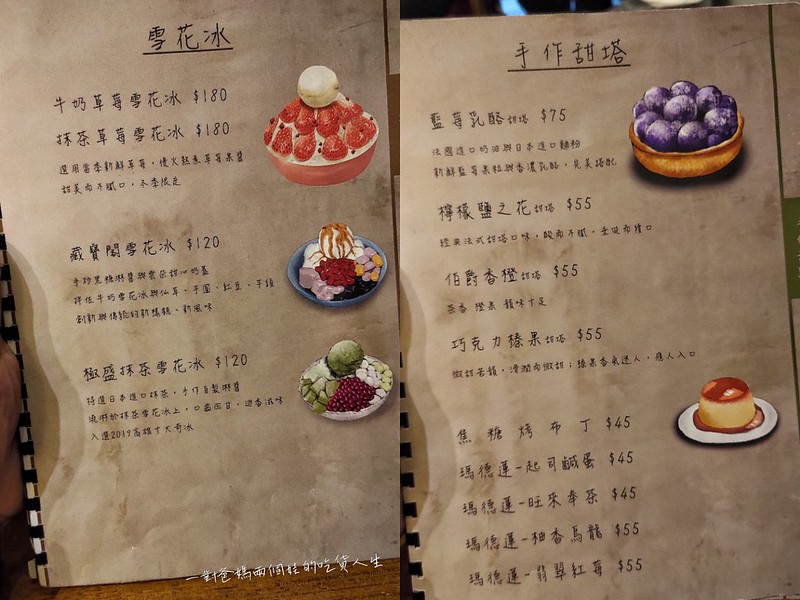 雪花冰
牛奶草莓雪花冰 $180
抹茶草莓雪花冰 $180
選用當季新鮮草莓,慢火熬煮草莓果醬
甜美而不膩口,冬季限定
藏寶閣雪花冰 $120
手炒黑糖淋醬與雲朵甜心奶蓋
搭佐牛奶雪花冰與仙草、芋圓、紅豆、芋頭
創新與傳統的新媒親、新風味
極盛抹茶雪花冰 $120
特選日本進口抹茶,手作自製淋醬
澆淋於抹茶雪花冰上,口齒回甘,迴香滋味
入選2019高雄十大奇冰
一對爸媽兩個娃的吃貨人生
手作甜塔
藍莓乳酪甜塔 $75
法國進口奶油與日本進口麵粉
新鮮藍莓果粒與香濃乳酪,完美搭配
檸檬鹽之花甜塔 $55
經典法式甜塔口味,酸而不膩,
伯爵香橙甜塔 $55
茶香 橙果 韻味十足
巧克力榛果甜塔 $55
微甜苦韻,滑潤而微甜;榛果香氣迷人,
焦糖烤布丁 $45
瑪德蓮-起司鹹蛋 $45
瑪德蓮-旺來奉茶 $45
瑪德蓮-柚香烏龍 $55
瑪德蓮-翡翠紅莓 $55